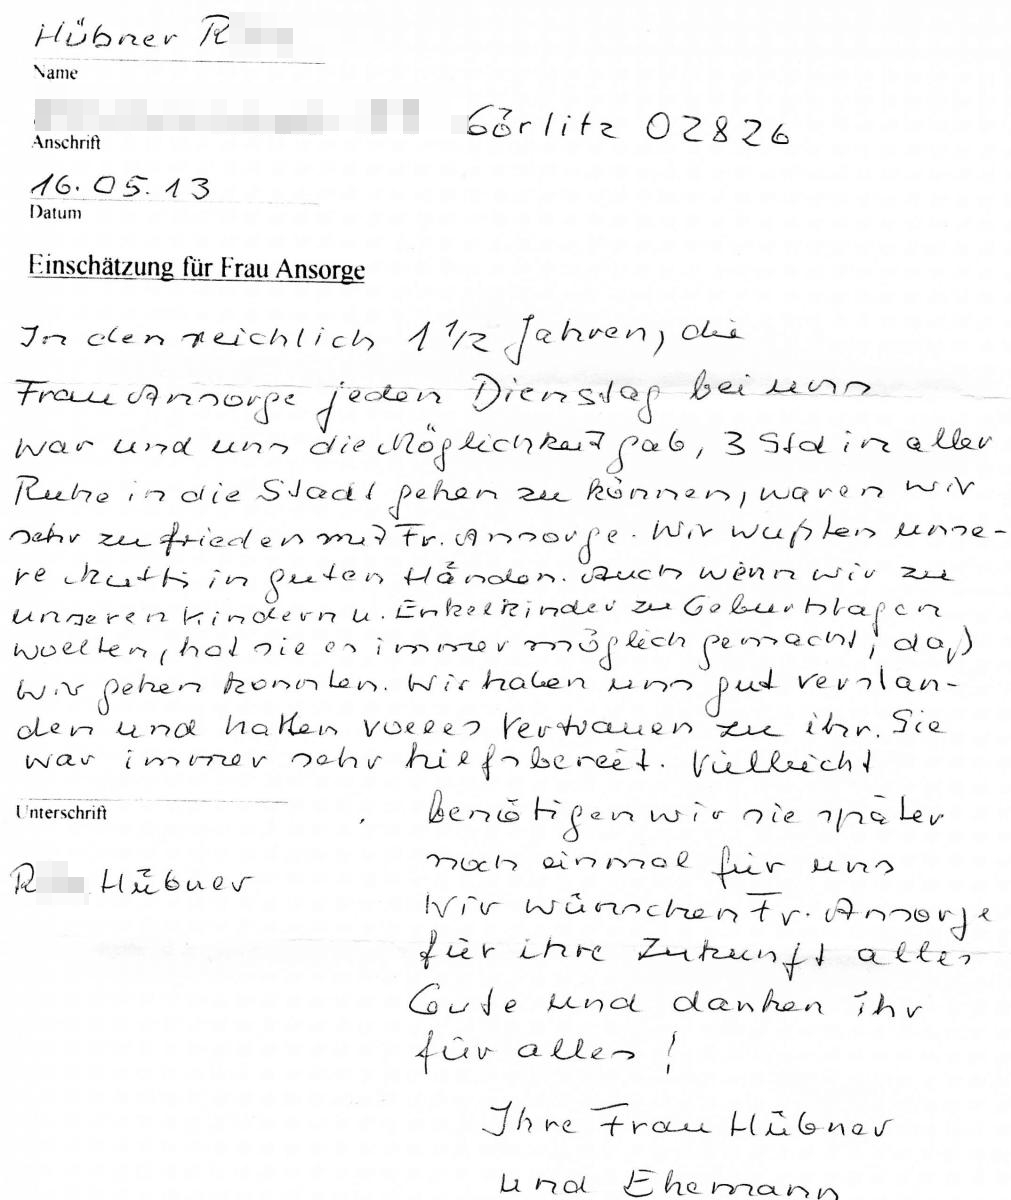 Hübner R
Name
Görlitz 02826
Anschrift
16.05.13
Datum
Einschätzung für Frau Ansorge
In den reichlich 1 1/2 Jahren, die
Frau Ansorge jeden Dienstag bei uns
war und uns die Möglichkeit gab, 3 Std in aller
Ruhe in die Stadt gehen zu können, waren wir
sehr zufrieden mit Fr. Ansorge. Wir wußten unse-
re Mutti in guten Händen. Auch wenn wir zu
unseren Kindern u. Enkelkinder zu Geburtstagen
wollten, hat sie es immer möglich gemacht, daß
wir gehen konnten. Wir haben uns gut verstan-
den und hatten volles Vertrauen zu ihr. Sie
war immer sehr hilfsbereit. Vielleicht
Unterschrift
benötigen wir sie später
noch einmal für uns
R Hübner
Wir wünschen Fr. Ansorge
für ihre Zukunft alles
Gute und danken ihr
für alles!
Ihre Frau Hübner
und Ehemann